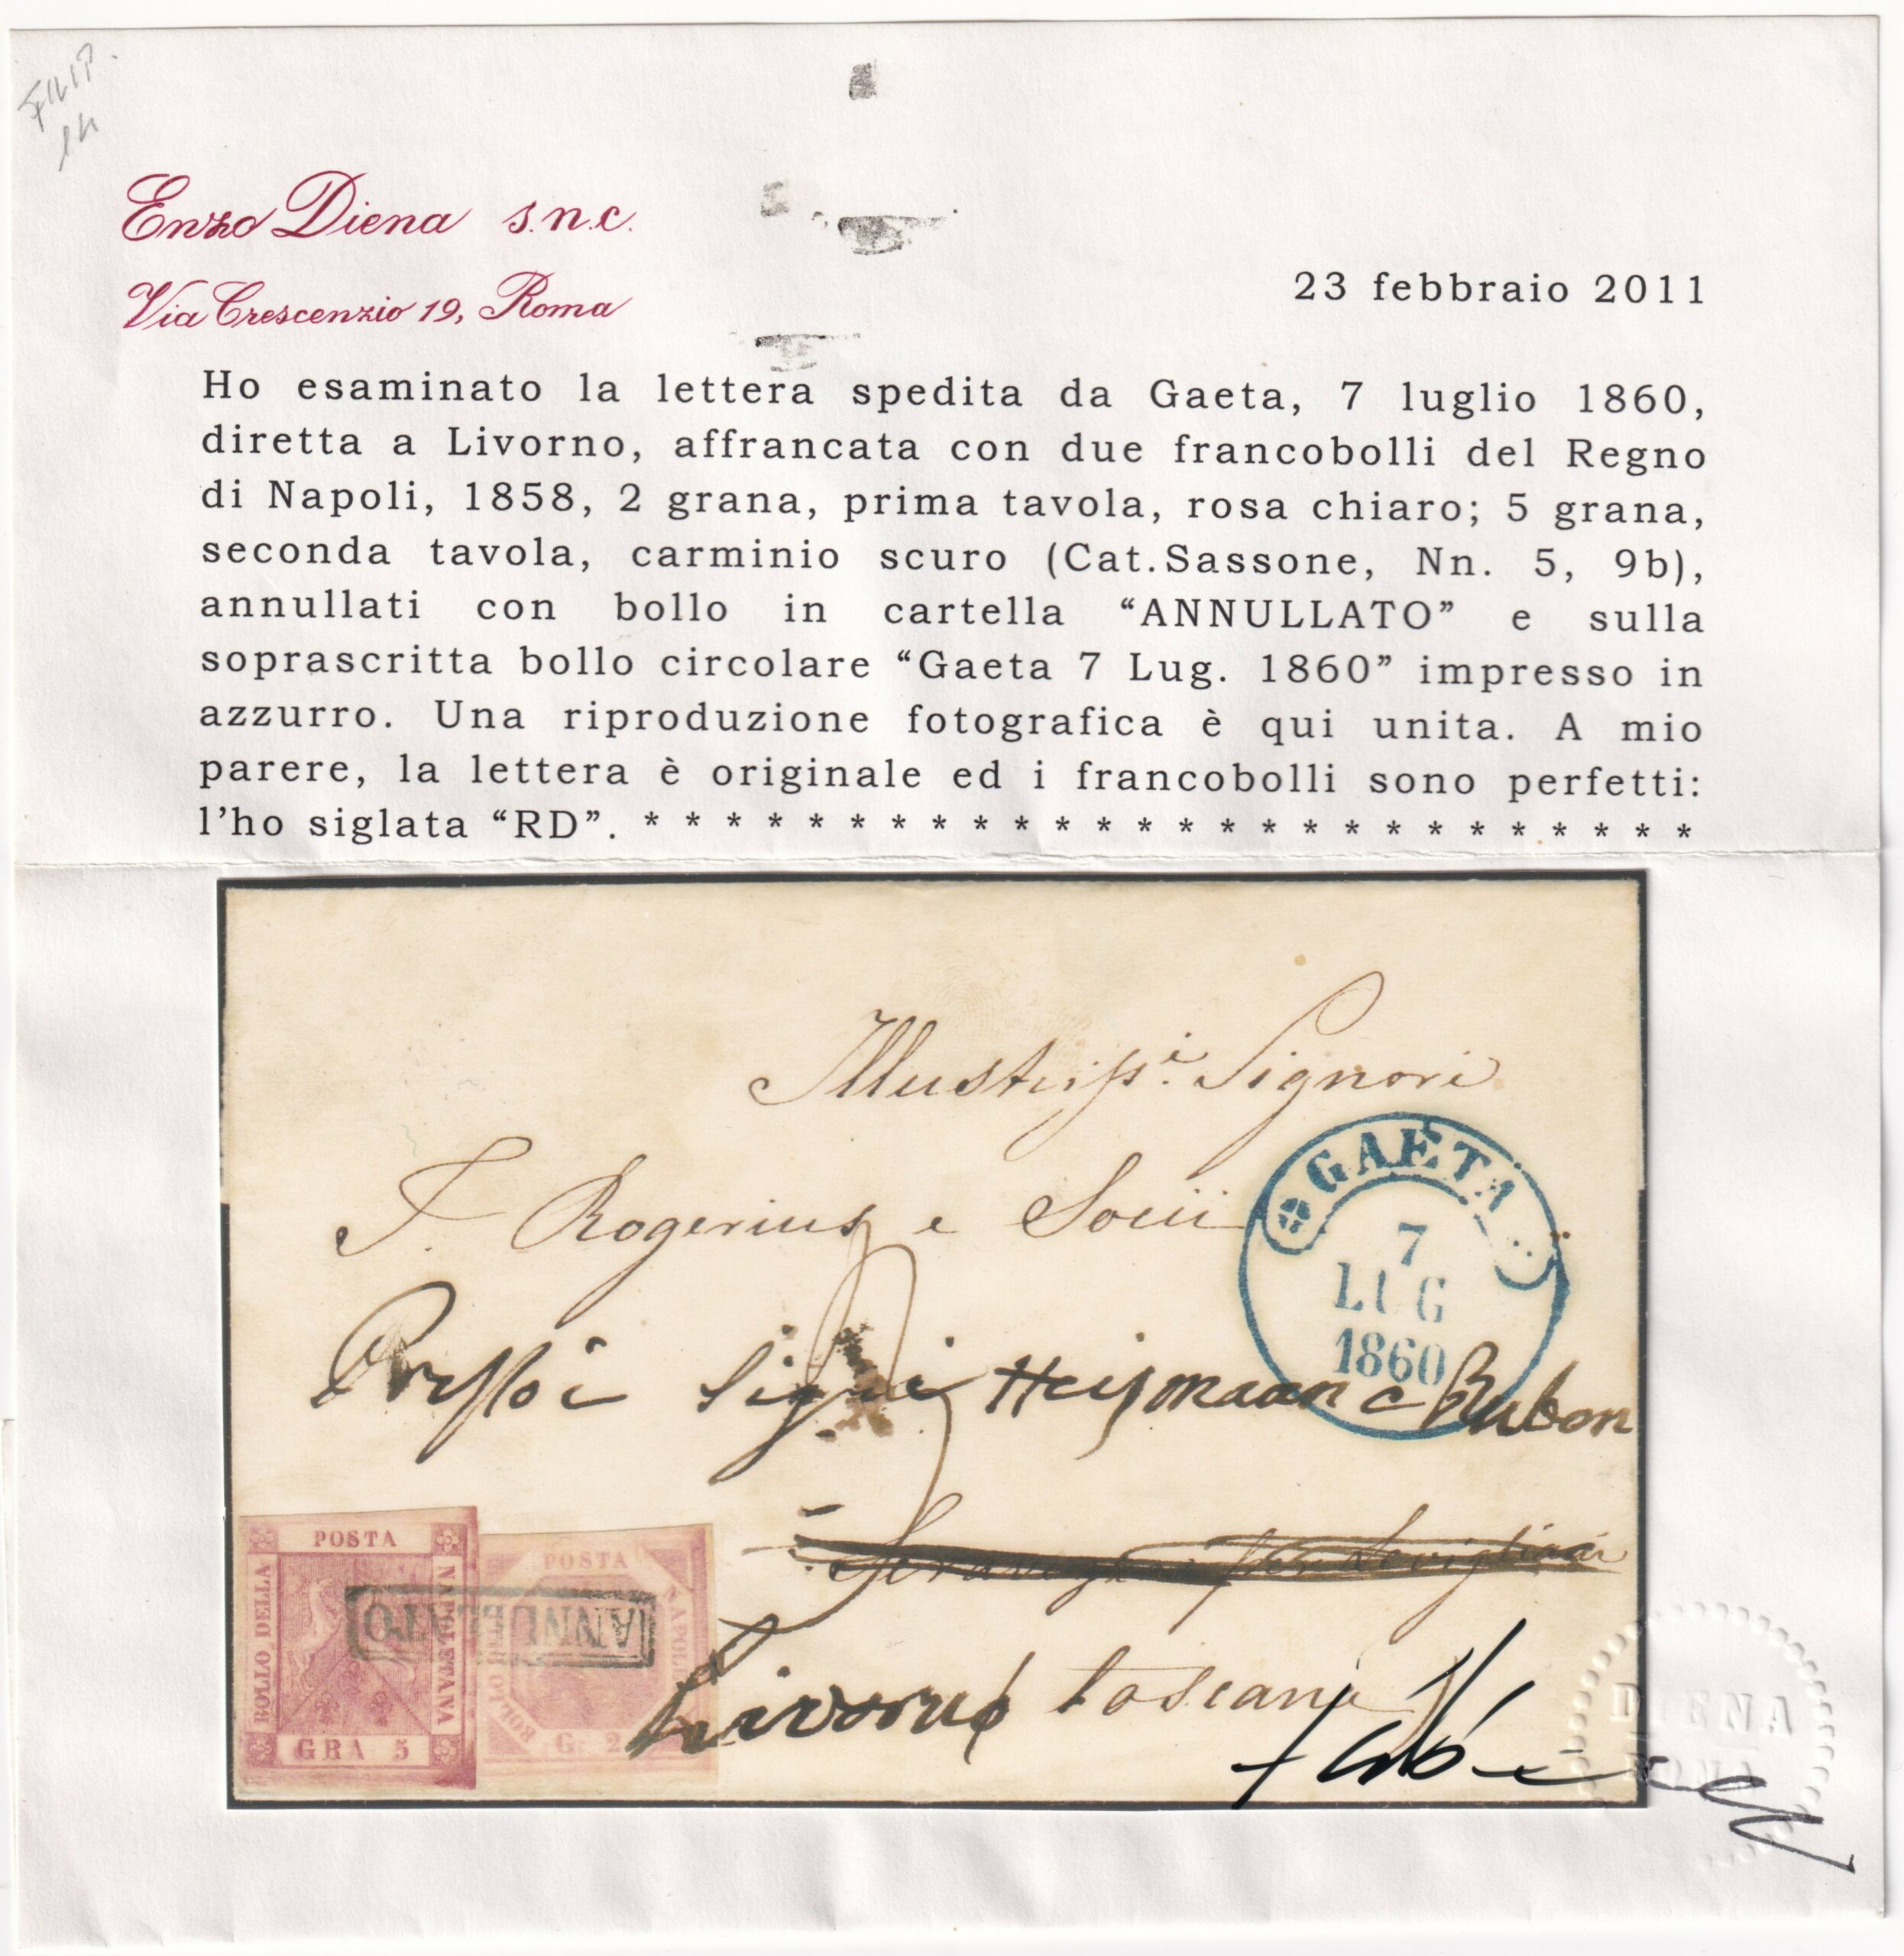 FILIP.
Enzo Diena s.n.c.
Via Crescenzio 19, Roma
23 febbraio 2011
Ho esaminato la lettera spedita da Gaeta, 7 luglio 1860,
diretta a Livorno, affrancata con due francobolli del Regno
di Napoli, 1858, 2 grana, prima tavola, rosa chiaro; 5 grana,
seconda tavola, carminio scuro (Cat.Sassone, Nn. 5, 9b),
annullati con bollo in cartella “ANNULLATO” e sulla
soprascritta bollo circolare “Gaeta 7 Lug. 1860” impresso in
azzurro. Una riproduzione fotografica è qui unita. A mio
parere, la lettera è originale ed i francobolli sono perfetti:
l’ho siglata “RD”. * * * * * * * * * * * * * * * * * * * * * * * * * *
Illustrissi. Signori
F. Rogerius e Socii
GAETA
7
LUG
1860
Presso i Sigri Heijmaan e Rubon
POSTA
NAPOLETANA
BOLLO DELLA
GRA 5
POSTA
NAPOL
BOLLO
G. 2
ANNULLATO
Livorno toscana
DIENA
ROMA